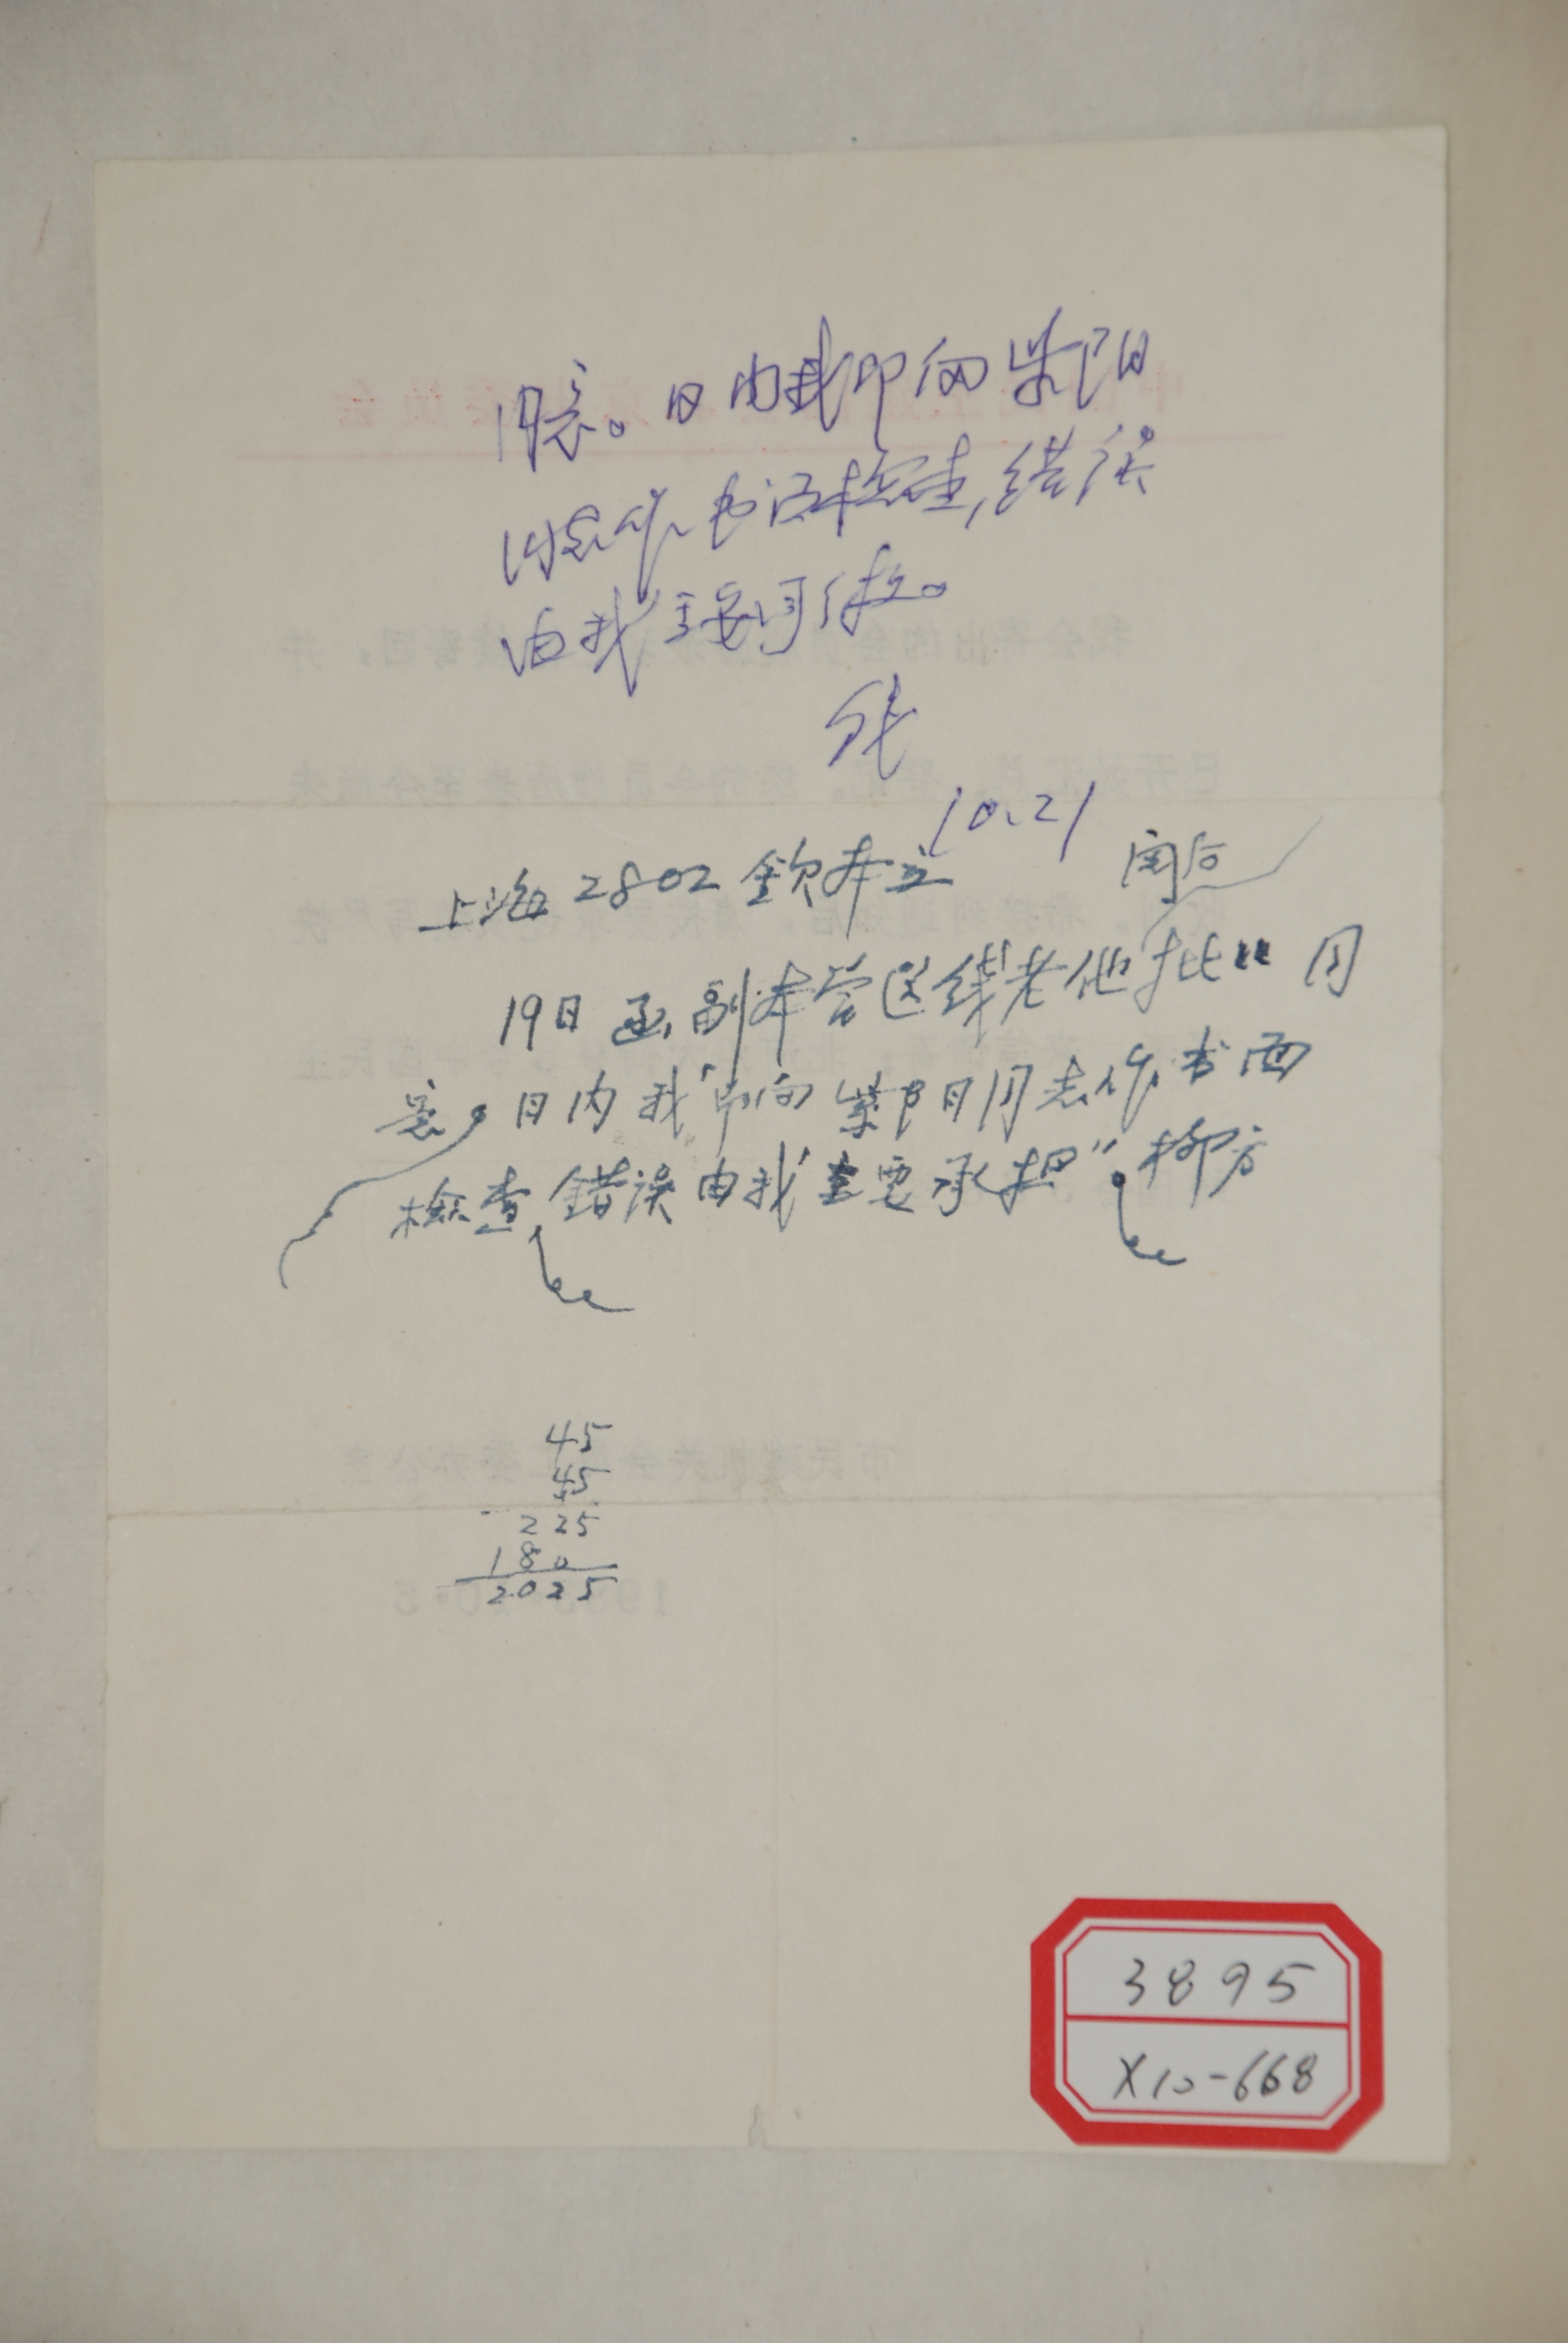 同意。日内我即向紫阳
同志作书面检查,错误
由我主要承担。
钱
10.21
上海2802 钦本立
阅后
19日函副本当送钱老他批“同
意,日内我即向紫阳同志作书面
检查,错误由我主要承担”。
45
45
225
180
2025
3895
X10-668